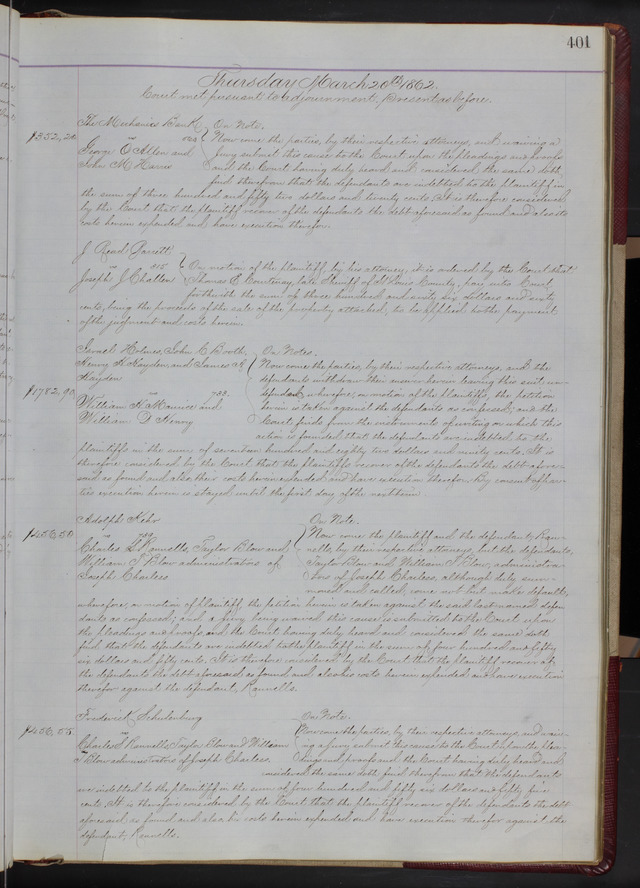 401
Thursday March 20th 1862.
Court met pursuant to adjournment, Present as before.
The Mechanics Bank On Note.
$352,20 vs Now come the parties, by their respective attorneys, and waiving a
George O Allen and jury submit this cause to the Court upon the pleadings and proofs
John M Harris and the Court having duly heard and considered the same doth
find therefrom that the defendants are indebted to the plaintiff in
the sum of three hundred and fifty two dollars and twenty cents. It is therefore considered
by the Court that the plaintiff recover of the defendants the debt aforesaid as found and also its
costs herein expended and have execution therefor.
J Read Garrett
vs On motion of the plaintiff by his attorney, it is ordered by the Court that
Joseph J Challen Thomas E Courtenay, late Sheriff of St Louis County, pay into Court
forthwith the sum of three hundred and sixty six dollars and
cents, being the proceeds of the sale of the property attached, to be applied to the payment
of the judgment and costs herein.
Israel Holmes, John C Booth, On Notes.
Henry H Hayden, and James R Now come the parties, by their respective attorneys, and the
Hayden defendants withdraw their answer herein leaving this suit un-
$1782,90 vs defended, wherefore, on motion of the plaintiffs, the petition
William H Maurice and herein is taken against the defendants as confessed; and the
William D Henry Court finds from the instruments of writing on which this
action is founded that the defendants are indebted to the
plaintiffs in the sum of seventeen hundred and eighty two dollars and ninety cents. It is
therefore considered by the Court that the plaintiffs recover of the defendants the debt afore-
said as found and also their costs herein expended and have execution therefor. By consent of par-
ties execution herein is stayed until the first day of the next term.
Adolph Kehr On Note.
$456,50 vs Now come the plaintiff and the defendant, Ran-
Charles S. Rannells, Taylor Blow and nells, by their respective attorneys, but the defendants,
William T Blow administrators of Taylor Blow and William T Blow, administra-
Joseph Charless tors of Joseph Charless, although duly sum-
moned and called, come not but make default,
wherefore, on motion of plaintiff, the petition herein is taken against the said last named defen-
dants as confessed; and a jury being waived this cause is submitted to the Court upon
the pleadings and proofs and the Court having duly heard and considered the same doth
find that the defendants are indebted to the plaintiff in the sum of four hundred and fifty
six dollars and fifty cents. It is therefore considered by the Court that the plaintiff recover of
the defendants the debt aforesaid as found and also his costs herein expended and have execution
therefor against the defendant, Rannells.
Frederick Schulenburg On Note.
$456,55 vs Now come the parties, by their respective attorneys, and waiv-
Charles S Rannells, Taylor Blow and William ing a jury submit this cause to the Court upon the plead-
T Blow administrators of Joseph Charless. ings and proofs and the Court having duly heard and
considered the same doth find therefrom that the defendants
are indebted to the plaintiff in the sum of four hundred and fifty six dollars and fifty five
cents. It is therefore considered by the Court that the plaintiff recover of the defendants the debt
aforesaid as found and also his costs herein expended and have execution therefor against the
defendant, Rannells.